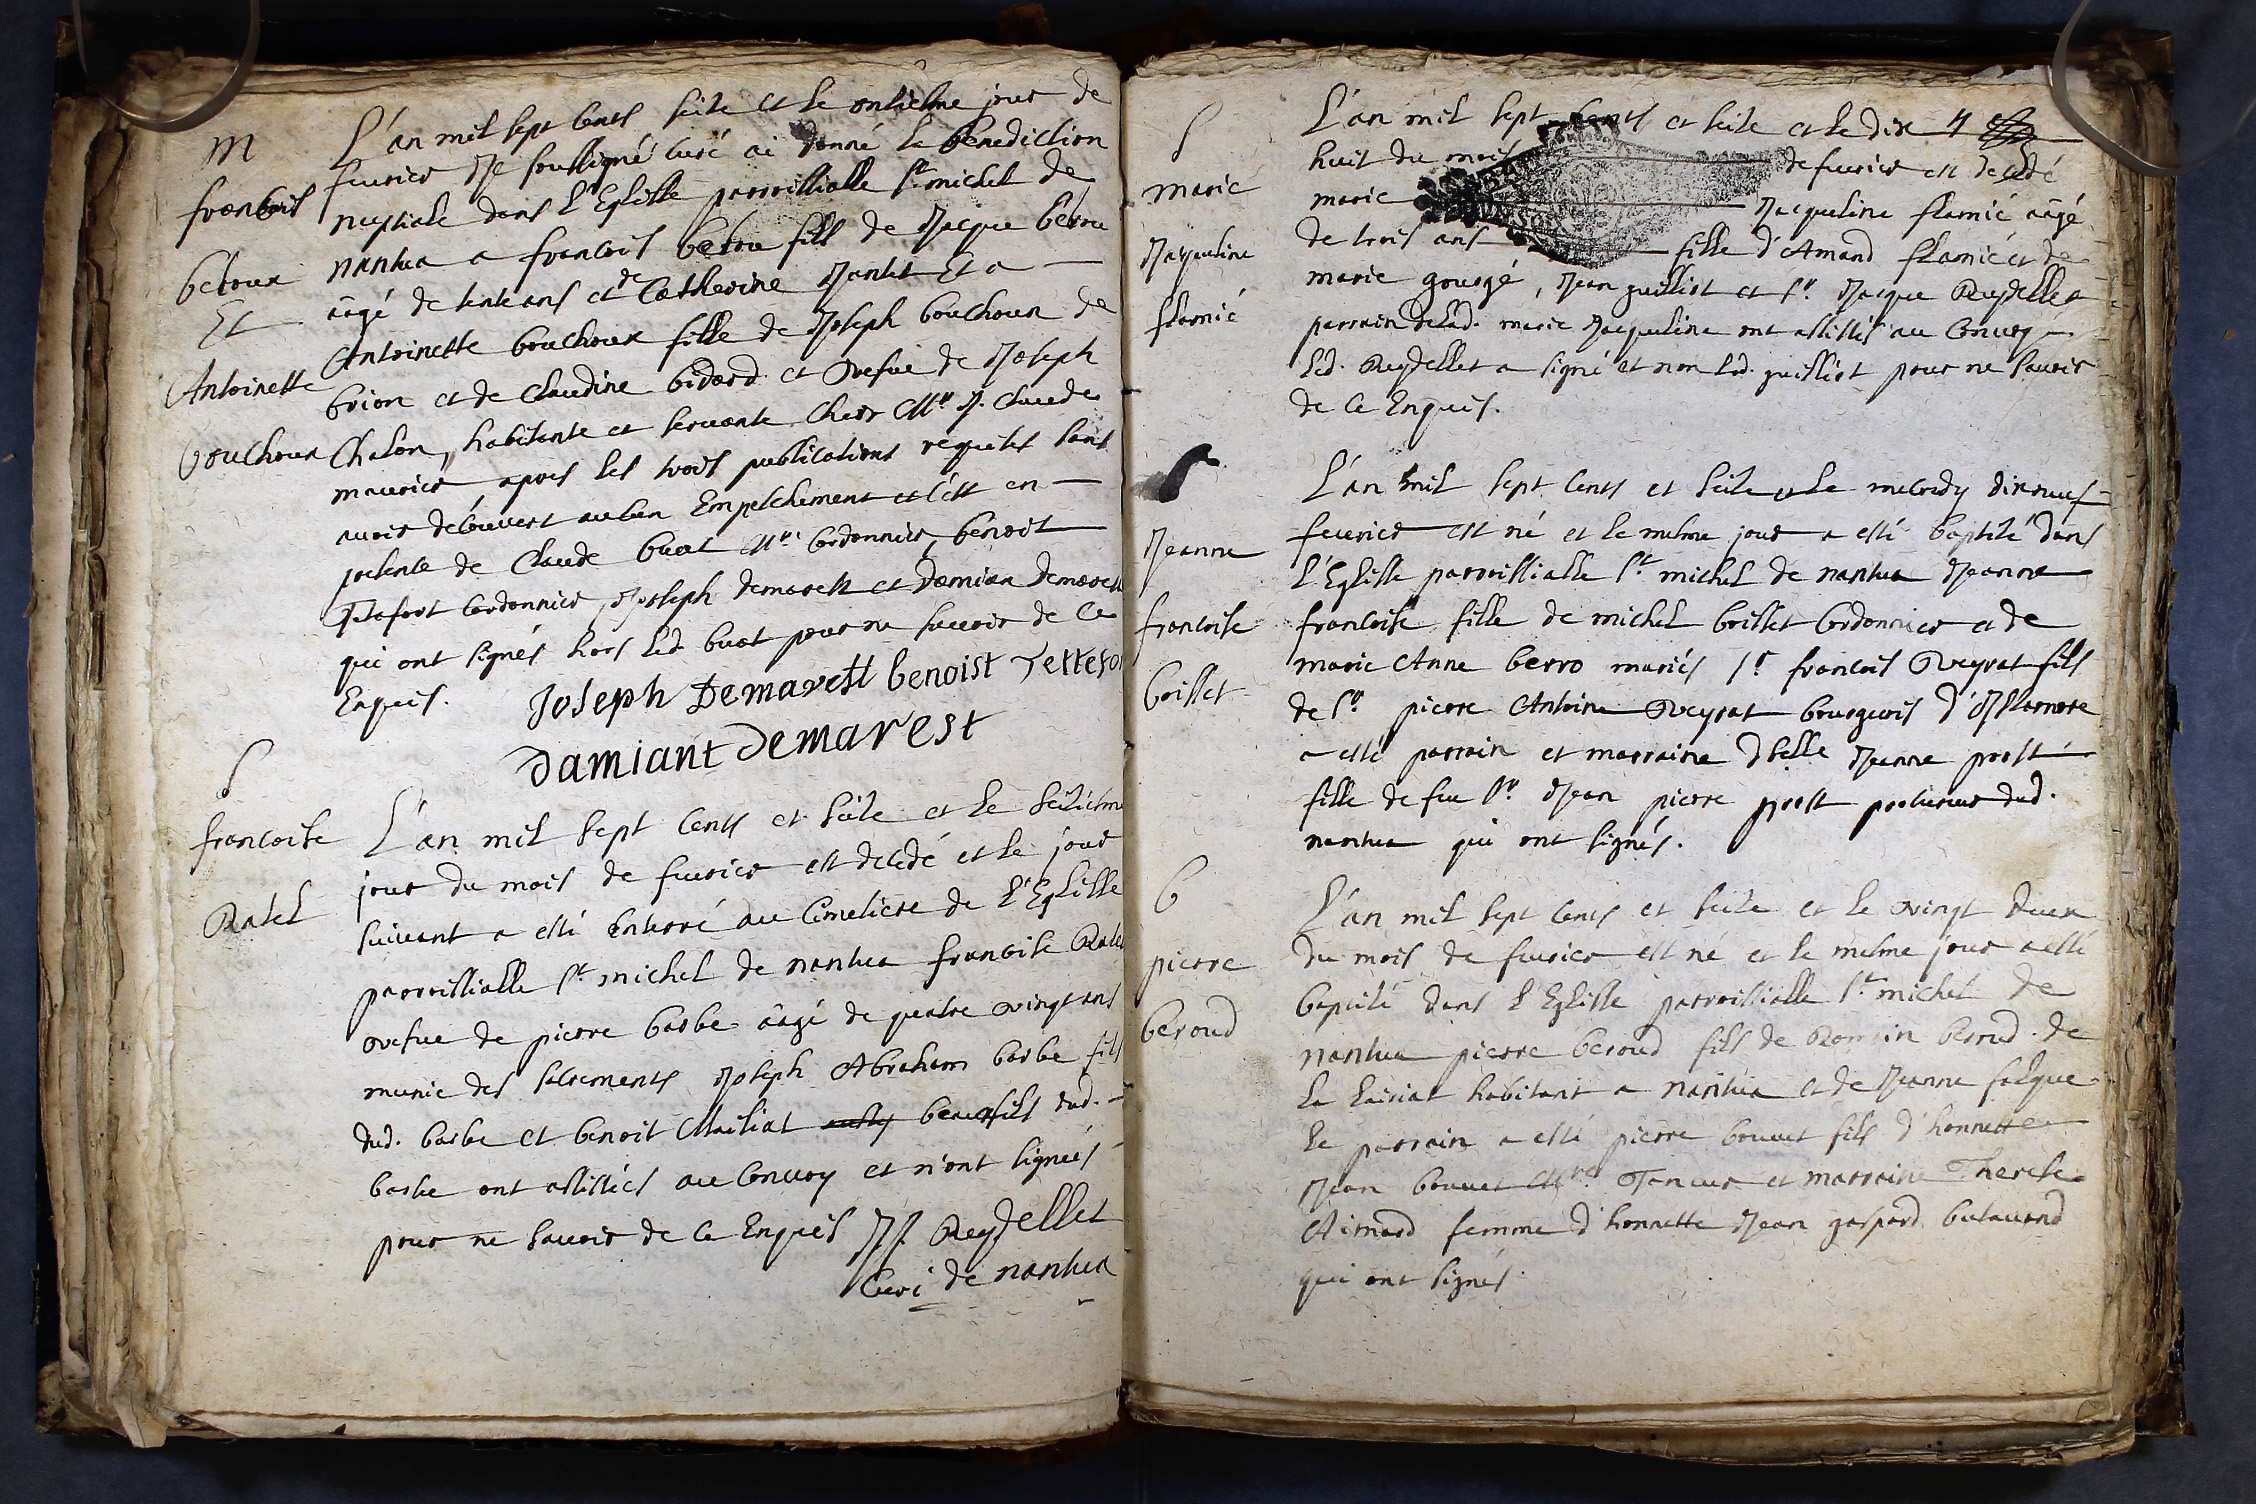 m
francois
betoux
Et
Antoinette
bouchoux
L'an mil sept cents seize et le onziesme jour de
feurier Je soussigné curé ai donné la benediction
nuptiale dans L'Eglisse parroissialle st michel de
nantua a francois betou fils de Jacque betou
aagé de tente ans et de Catherine Jantet Et a
Antoinette bouchoux fille de Joseph bouchoux de
brion et de Claudine bidard et vefue de Joseph
Chalon, habitante et seruante cheor Mr J. Claude
maurier apres les trois publications requises sans
auoir decouuert aucun Empeschement et c'est en
presence de Claude buat Mre Cordonnier, benoit
Tetafort Cordonnier, Joseph demarest et Damian demarest
qui ont signés hors led. buat pour ne sauoir de ce
Enquis.
Joseph Demarest benoist Tettefor
Damiant Demarest
S
francoise
Ratel
L'an mil sept cents et seize et le seiziesme
jour du mois de feurier est decedé et le jour
suiuant a esté enterré au Cimetiere de L'Eglisse
parroissialle st michel de nantua francoise Ratel
vefue de pierre barbe aagé de quatre vingt ans
munie des sacrements Joseph Abraham barbe fils
dud. barbe et benoit Mailiat beaufils dud.
barbe ont assistés au Conuoy et n'ont signués
pour ne sauoir de ce Enquis JJ Reydellet
Curé de nantua
S
marie
Jacqueline
flamié
L'an mil sept cents et seize et le dix
huit du mois de feurier est decedé
marie Jacqueline flamié aagé
de trois ans fille d'Amand flamié et de
marie gourgé, Jean guilliot et sr. Jacque Reydellet
parrain delad. marie Jacqueline ont assistés au Conuoy
led. Reydellet a signé et non led. guilliot pour ne sauoir
de ce Enquis.
Jeanne
francoise
brisset
L'an mil sept cents et seize et le mecredy dixneuf
feurier est né et le mesme jour a esté baptisé dans
L'Eglisse parroissialle st michel de nantua Jeanne
francoise fille de michel brisset Cordonnier et de
marie Anne berro mariés sr francois Veyrat fils
de sr. pierre Antoine Veyrat bourgeois d'Isernore
a esté parrain et marraine dselle Jeanne prost
fille de feu sr. Jean pierre prost procureur dud.
nantua qui ont signés.
b
pierre
beroud
L'an mil sept cents et seize et le vingt deux
du mois de feurier est né et le mesme jour a esté
baptisé dans L'Eglisse parroissialle st michel de
nantua pierre beroud fils de Romain beroud de
habitant a nantua et de Jeanne falque
le parrain a esté pierre bouuet fils d'honnette
Jean bouuet Mre Taneur et marraine Therese
Aimard femme d'honnette Jean gaspard
qui ont signés.